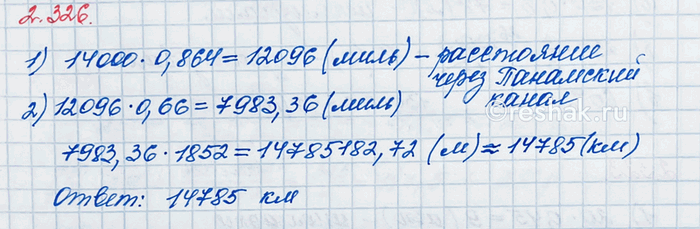 2.326.
1) 14000 · 0,864 = 12096 (миль) – расстояние
через Панамский
канал
2) 12096 · 0,66 = 7983,36 (миль)
7983,36 · 1852 = 14785182,72 (м) ≈ 14785 (км)
Ответ: 14785 км
©reshak.ru